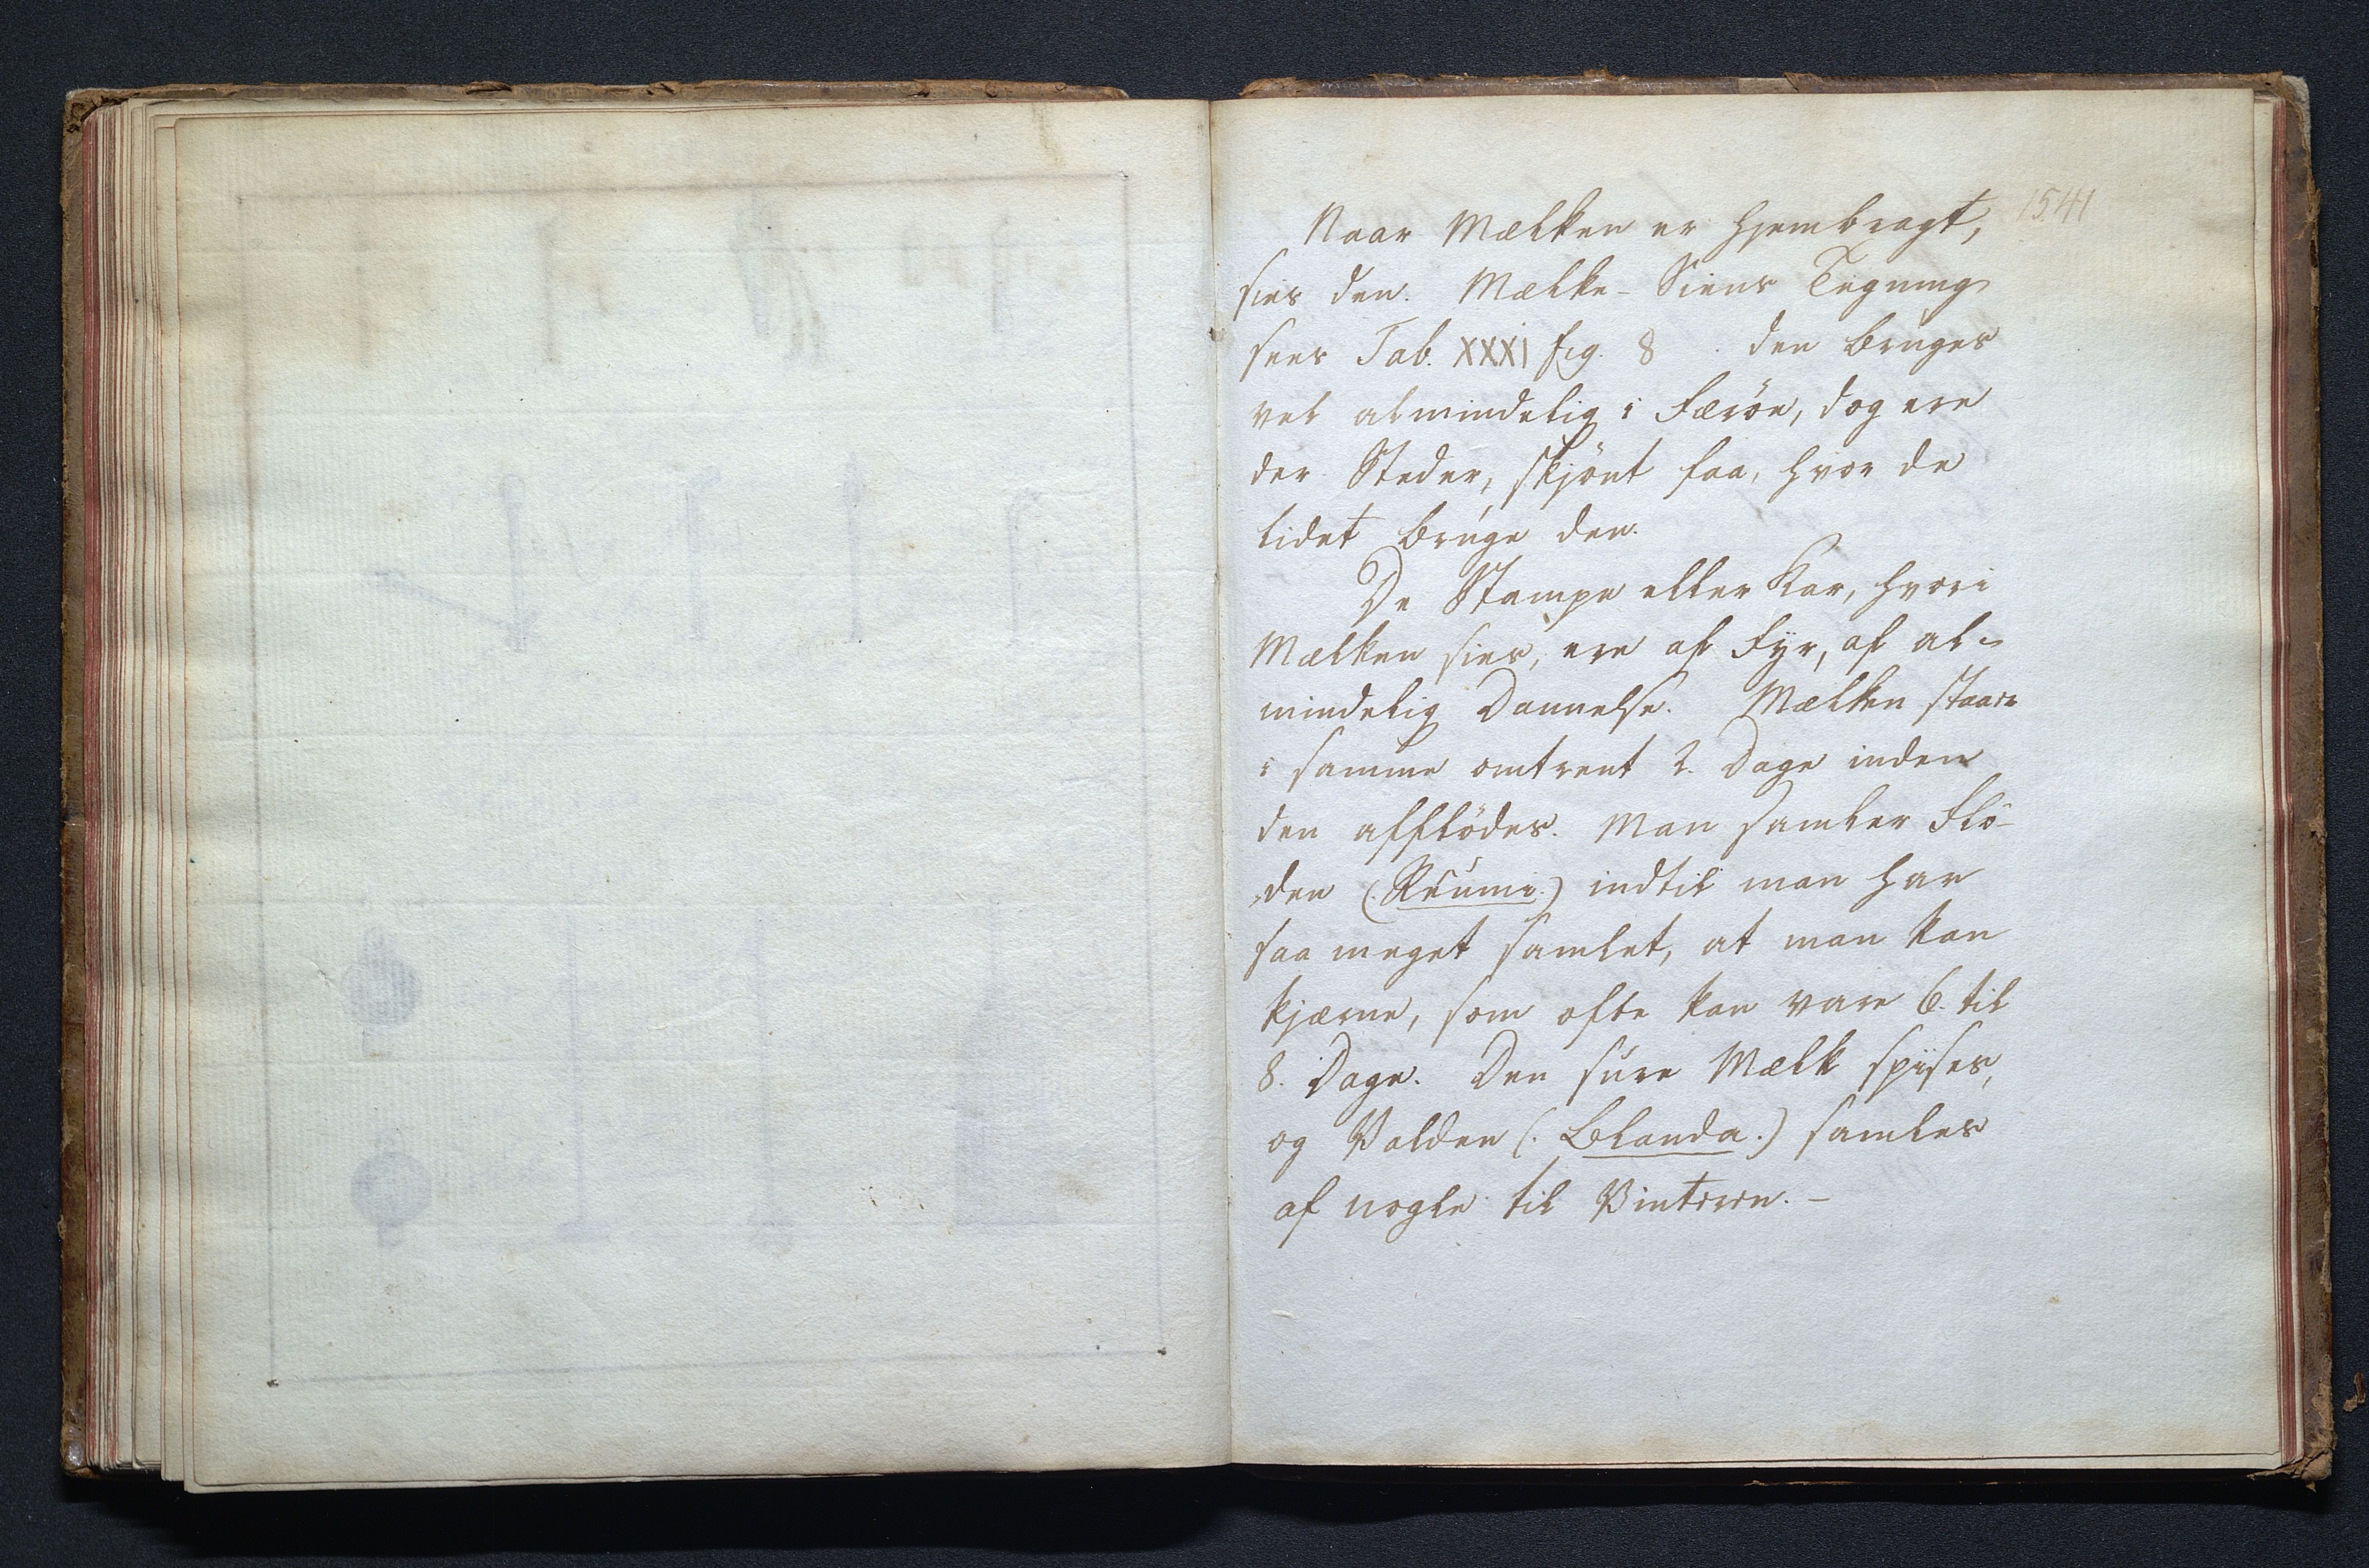 1541
Naar Mælken er hjembragt,
sies den. Mælke-Siens Tegning
sees Tab. XXXI fig. 8. den bruges
vel almindelig i Færöe, dog ere
der Steder, skjönt faa, hvor de
lidet bruge den.
De Stampe eller Kar, hvori
Mælken sies, ere af Fyr, af al-
mindelig Dannelse. Mælken staar
i samme omtrent 2. Dage inden
den afflödes. Man samler Flö-
den (Reumi.) indtil man har
saa meget samlet, at man kan
kjærne, som ofte kan vare 6. til
8. Dage. Den sure Mælk spises,
og Valden (. Blanda.) samles
af nogle til Vinteren. -